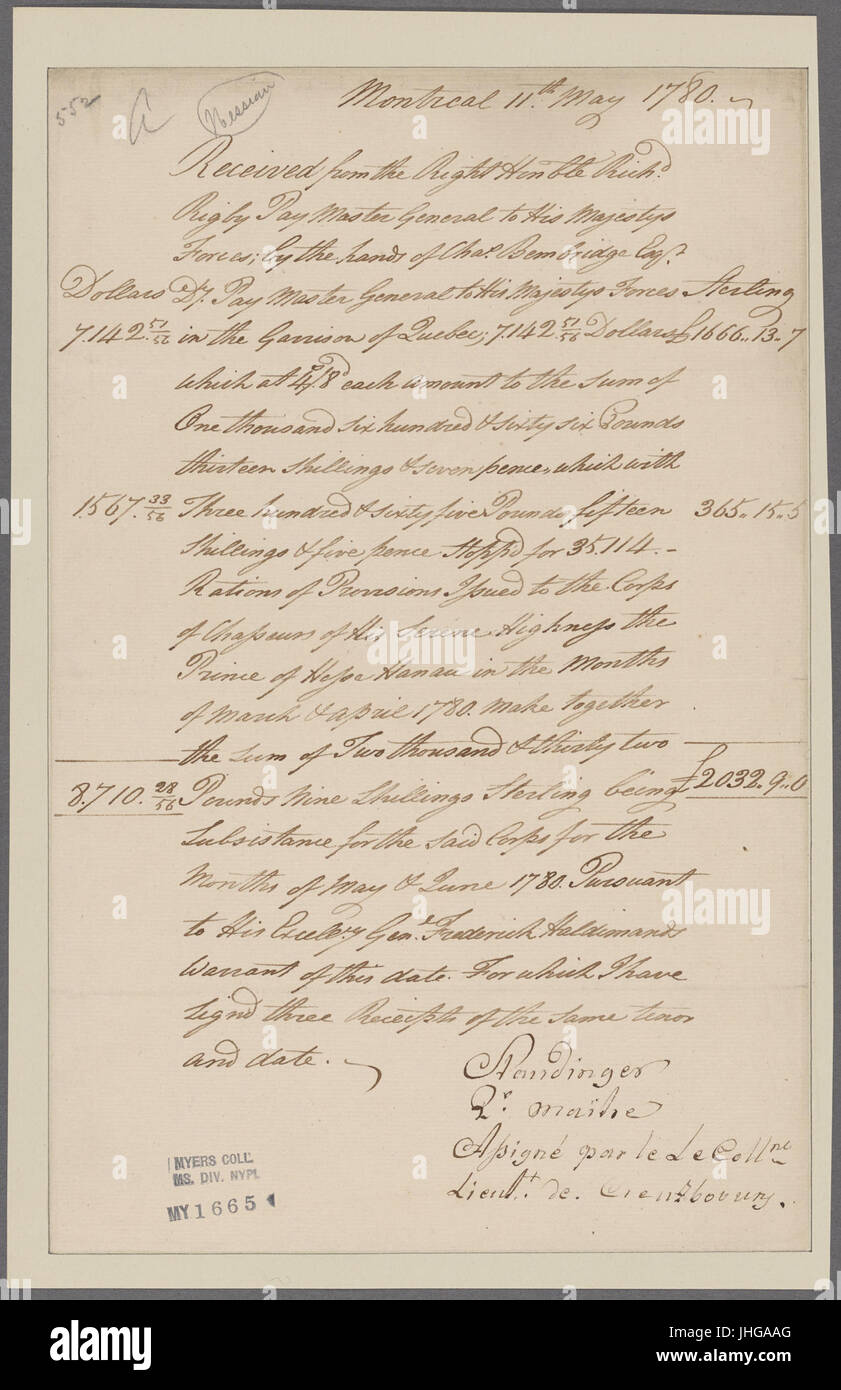 552 a Hessian
Montreal 11th. May 1780.
Received from the Right Honble Richd.
Rigby Pay Master General to His Majestys
Forces; by the hands of Chas. Bembridge Esqr.
Dollars Dy. Pay Master General to His Majestys Forces Sterling
7.142.51/56 in the Garrison of Quebec; 7.142.51/56 Dollars £1666..13..7
which at 4s/8d each amount to the sum of
One thousand six hundred & sixty six Pounds
thirteen shillings & seven pence, which with
1.567.33/56 Three hundred & sixty five Pounds fifteen 365..15..5
Shillings & five pence Stopp'd for 35.114.-
Rations of Provisions Issued to the Corps
of Chasseurs of His Serene Highness the
Prince of Hesse Hanau in the Months
of March & April 1780. Make together
the sum of Two thousand & thirty two
8.710.28/56 Pounds Nine Shillings Sterling being £2032..9..0
Subsistance for the said Corps for the
Months of May & June 1780. Pursuant
to His Excellcy. Genl. Frederick Haldimands
Warrant of this date. For which I have
Signd three Receipts of the same tenor
and date.
Staudinger
Qr. maitre
Assigné par le Le Collne
Lieutt. de. Creuzbourg.
MYERS COLL.
MS. DIV. NYPL
MY1665
alamy
alamy stock photo
JHGAAG
www.alamy.com